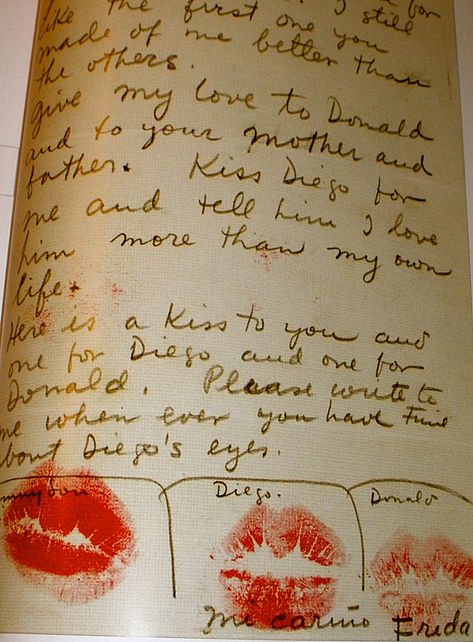 for
like the first one you still
made of me better than
the others.
Give my love to Donald
and to your mother and
father. Kiss Diego for
me and tell him I love
him more than my own
life.
Here is a Kiss to you and
one for Diego and one for
Donald. Please write to
me when ever you have time
about Diego's eyes.
Diego. Donald
mi cariño Frida